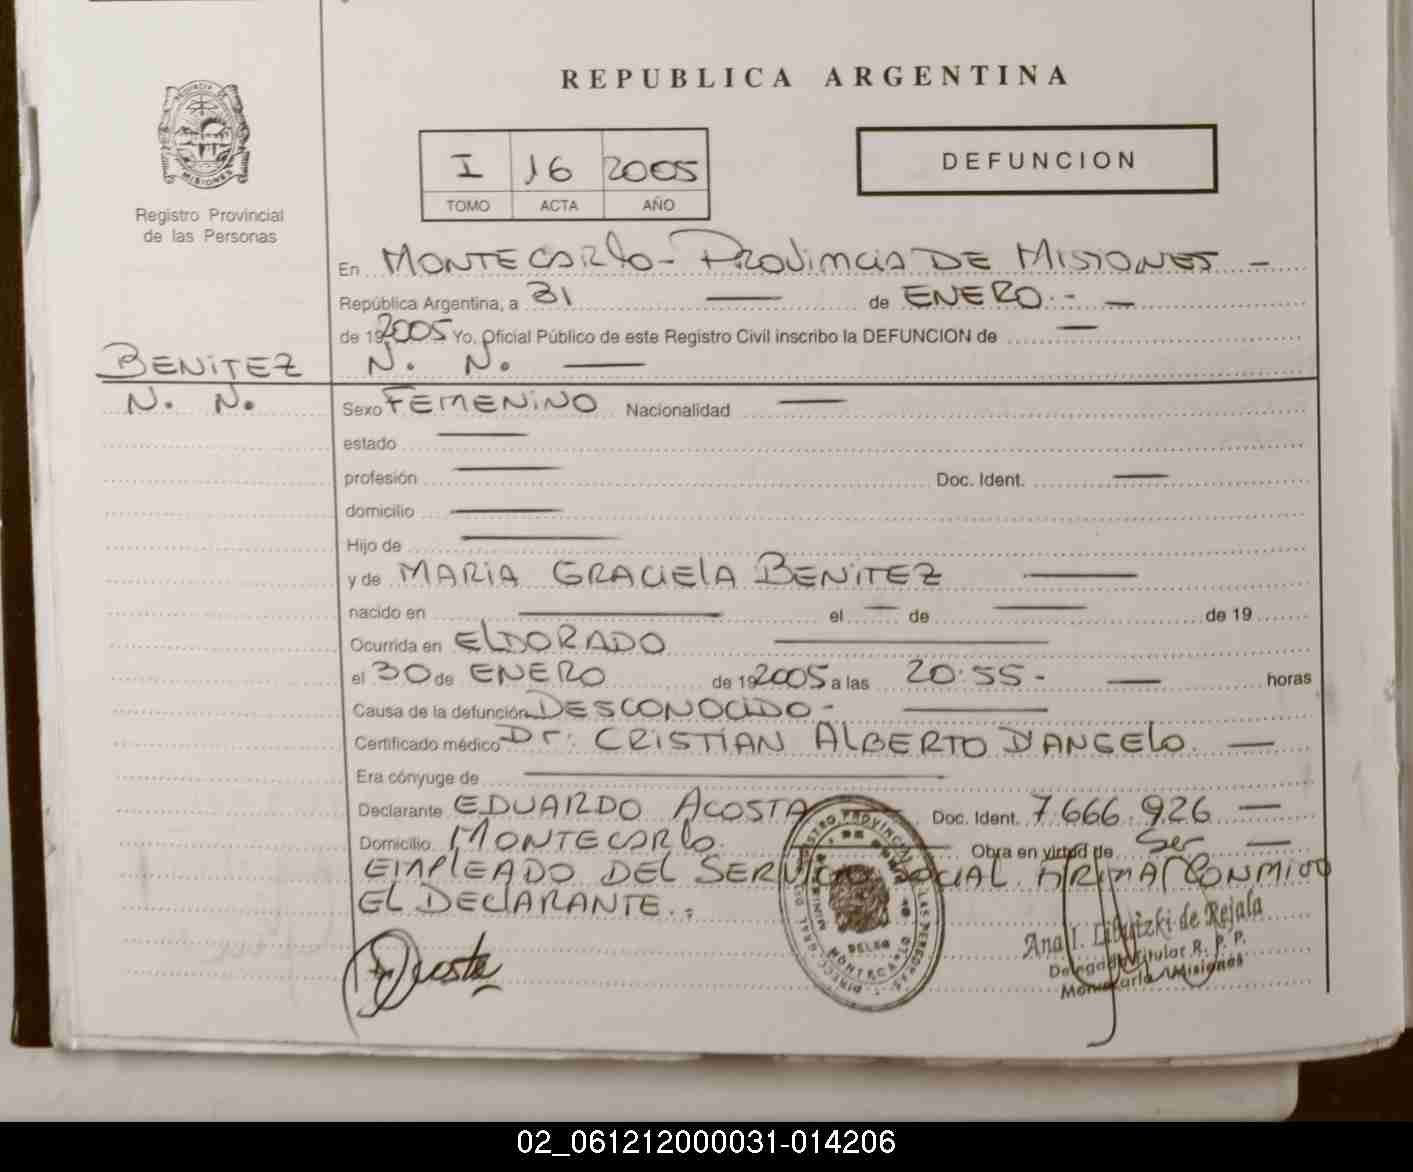 REPUBLICA ARGENTINA
PROVINCIA DE MISIONES
Registro Provincial
de las Personas
I 16 2005
TOMO ACTA AÑO
DEFUNCION
En MONTECARLO - PROVINCIA DE MISIONES -
República Argentina, a 31 — de ENERO.- —
de 192005 Yo, Oficial Público de este Registro Civil inscribo la DEFUNCION de —
BENITEZ
N. N.
N. N. —
Sexo FEMENINO Nacionalidad —
estado —
profesión — Doc. Ident. —
domicilio —
Hijo de —
y de MARIA GRACIELA BENITEZ —
nacido en — el — de — de 19
Ocurrida en ELDORADO —
el 30 de ENERO de 192005 a las 20:55 - — horas
Causa de la defunción DESCONOCIDO - —
Certificado médico Dr. CRISTIAN ALBERTO D'ANGELO. —
Era cónyuge de —
Declarante EDUARDO ACOSTA — Doc. Ident. 7.666.926 —
Domicilio MONTECARLO. — Obra en virtud de Ser —
EMPLEADO DEL SERVICIO SOCIAL. FIRMA CONMIGO
EL DECLARANTE.-
Acosta
MONTECARLO
Ana I. de Rejala
Delegada Titular R. P. P.
Montecarlo Misiones
02_061212000031-014206